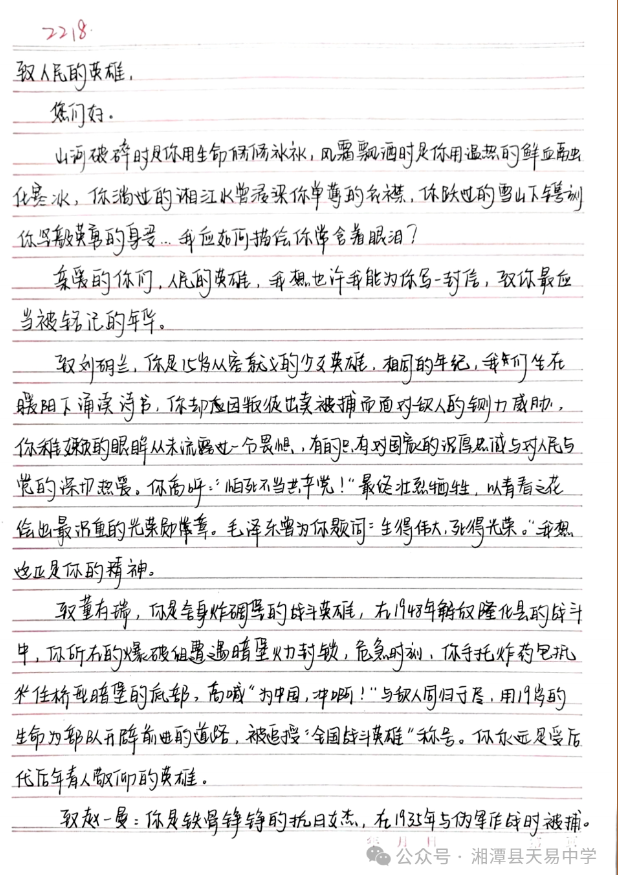 2218
致人民的英雄，
您们好。
山河破碎时是你用生命修修补补，风霜飘洒时是你用温热的鲜血融
化寒冰，你淌过的湘江水曾浸湿你单薄的衣襟，你跃过的雪山下镌刻
你坚毅英勇的身姿…我应如何描绘你常含着眼泪？
亲爱的你们，人民的英雄，我想也许我能为你写一封信，致你最应
当被铭记的年华。
致刘胡兰，你是15岁从容就义的少女英雄，相同的年纪，我们生在
暖阳下诵读诗书，你却因叛徒出卖被捕而面对敌人的铡刀威胁，
你稚嫩的眼眸从未流露过一分畏惧，有的只有对国家的深厚忠诚与对人民与
党的深切热爱。你高呼："怕死不当共产党！"最终壮烈牺牲，以青春之花
绘出最沉重的光荣勋章。毛泽东曾为你题词："生得伟大，死得光荣。"我想
这正是你的精神。
致董存瑞，你是舍身炸碉堡的战斗英雄，在1948年解放隆化县的战斗
中，你所在的爆破组遭遇暗堡火力封锁，危急时刻，你手托炸药包抵
住桥型暗堡的底部，高喊"为中国，冲啊！"与敌人同归于尽，用19岁的
生命为部队开辟前进的道路，被追授"全国战斗英雄"称号。你永远是受后
代后年青人敬仰的英雄。
致赵一曼：你是铁骨铮铮的抗日女杰，在1935年与伪军作战时被捕。
年 月 日
公众号·湘潭县天易中学